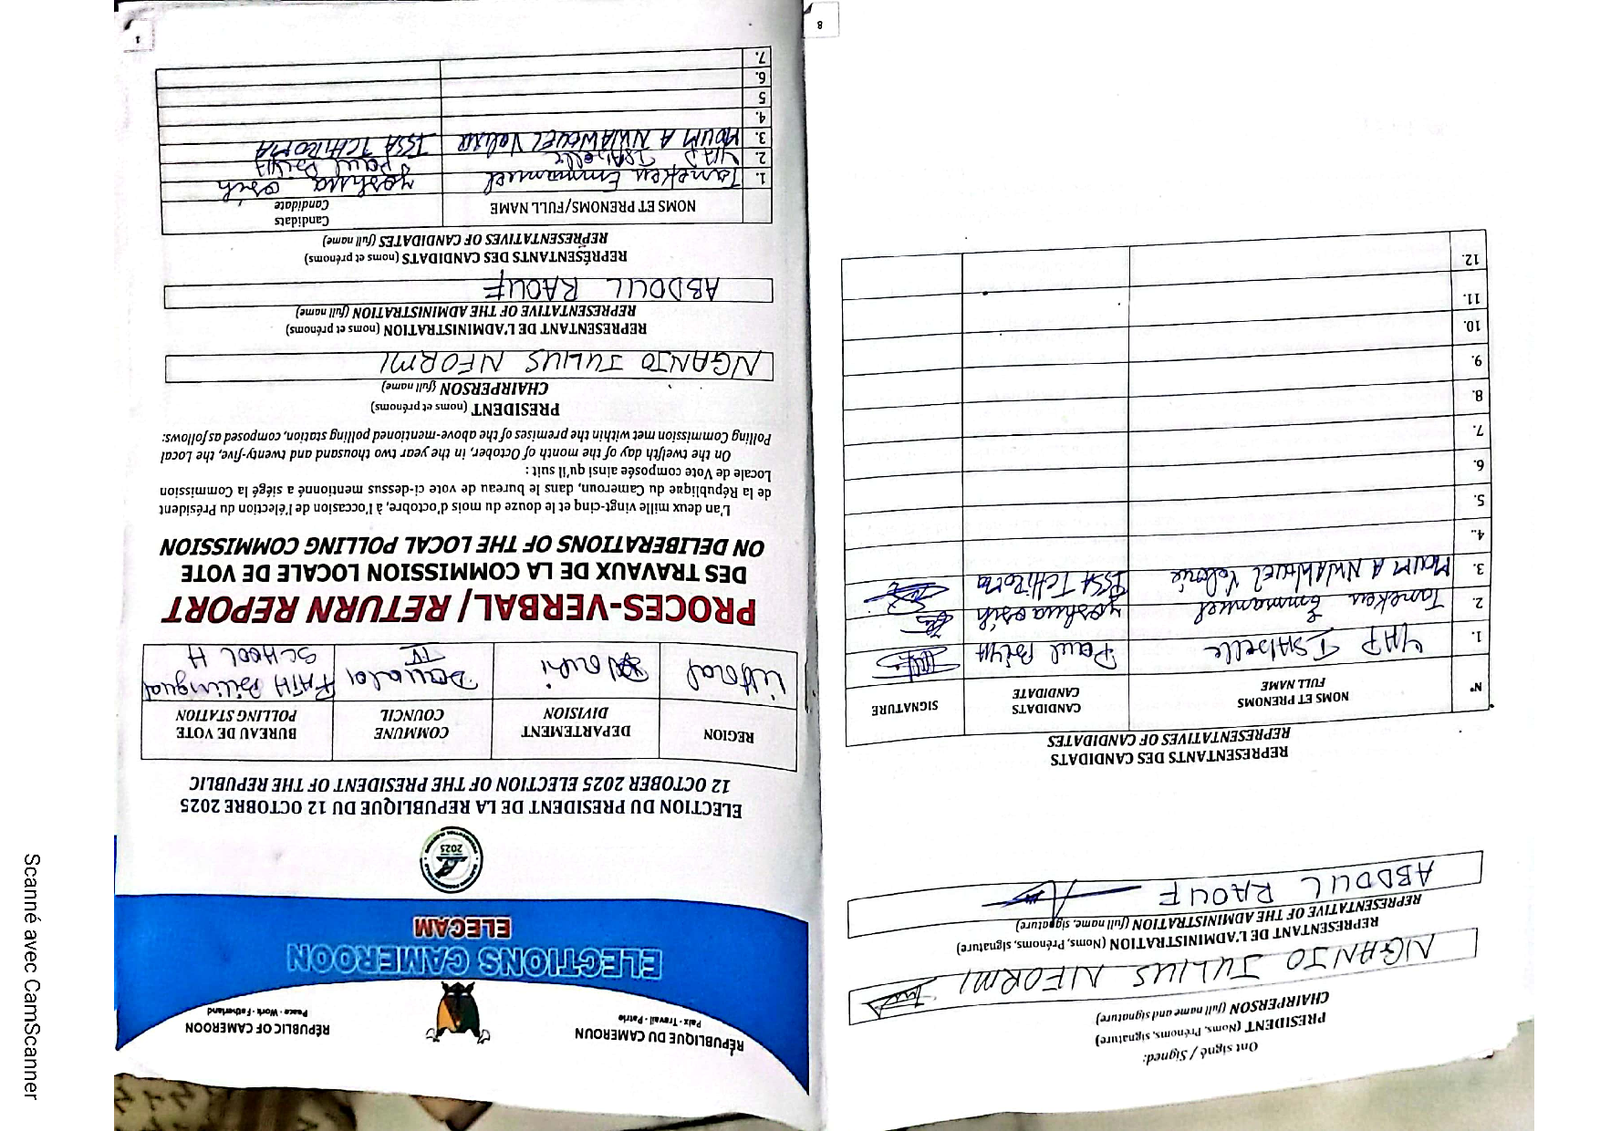 RÉPUBLIQUE DU CAMEROUN
Paix - Travail - Patrie
RÉPUBLIC OF CAMEROON
Peace - Work - Fatherland
ELECTIONS CAMEROON
ELECAM
2025
ELECTION DU PRESIDENT DE LA REPUBLIQUE DU 12 OCTOBRE 2025
12 OCTOBER 2025 ELECTION OF THE PRESIDENT OF THE REPUBLIC
REGION
DEPARTEMENT
DIVISION
COMMUNE
COUNCIL
BUREAU DE VOTE
POLLING STATION
Littoral
Wouri
Douala
IV
FAITH Bilingual
SCHOOL H
PROCES-VERBAL/ RETURN REPORT
DES TRAVAUX DE LA COMMISSION LOCALE DE VOTE
ON DELIBERATIONS OF THE LOCAL POLLING COMMISSION
L'an deux mille vingt-cinq et le douze du mois d'octobre, à l'occasion de l'élection du Président
de la République du Cameroun, dans le bureau de vote ci-dessus mentionné a siégé la Commission
Locale de Vote composée ainsi qu'il suit :
On the twelfth day of the month of October, in the year two thousand and twenty-five, the Local
Polling Commission met within the premises of the above-mentioned polling station, composed as follows:
PRESIDENT (noms et prénoms)
CHAIRPERSON (full name)
NGANJO JULIUS NFORMI
REPRESENTANT DE L'ADMINISTRATION (noms et prénoms)
REPRESENTATIVE OF THE ADMINISTRATION (full name)
ABDOUL RAOUF
REPRÉSENTANTS DES CANDIDATS (noms et prénoms)
REPRESENTATIVES OF CANDIDATES (full name)
NOMS ET PRENOMS/FULL NAME
Candidats
Candidate
1. Tameken Emmanuel Yoshua osih
2. YAP Isabelle Paul Biya
3. MOUM A NWAWOUEL ISSA TCHIROMA
4.
5
6.
7.
1
Ont signé / Signed:
PRESIDENT (Noms, Prénoms, signature)
CHAIRPERSON (full name and signature)
NGANJO JULIUS NFORMI
REPRESENTANT DE L'ADMINISTRATION (Noms, Prénoms, signature)
REPRESENTATIVE OF THE ADMINISTRATION (full name, signature)
ABDOUL RAOUF
REPRESENTANTS DES CANDIDATS
REPRESENTATIVES OF CANDIDATES
N°
NOMS ET PRENOMS
FULL NAME
CANDIDATS
CANDIDATE
SIGNATURE
1. YAP Isabelle Paul Biya
2. Tameken Emmanuel Yoshua osih
3. MOUM A NWAWOUEL Valerie ISSA TCHIROMA
4..
5.
6.
7.
8.
9.
10.
11.
12.
8
Scanné avec CamScanner